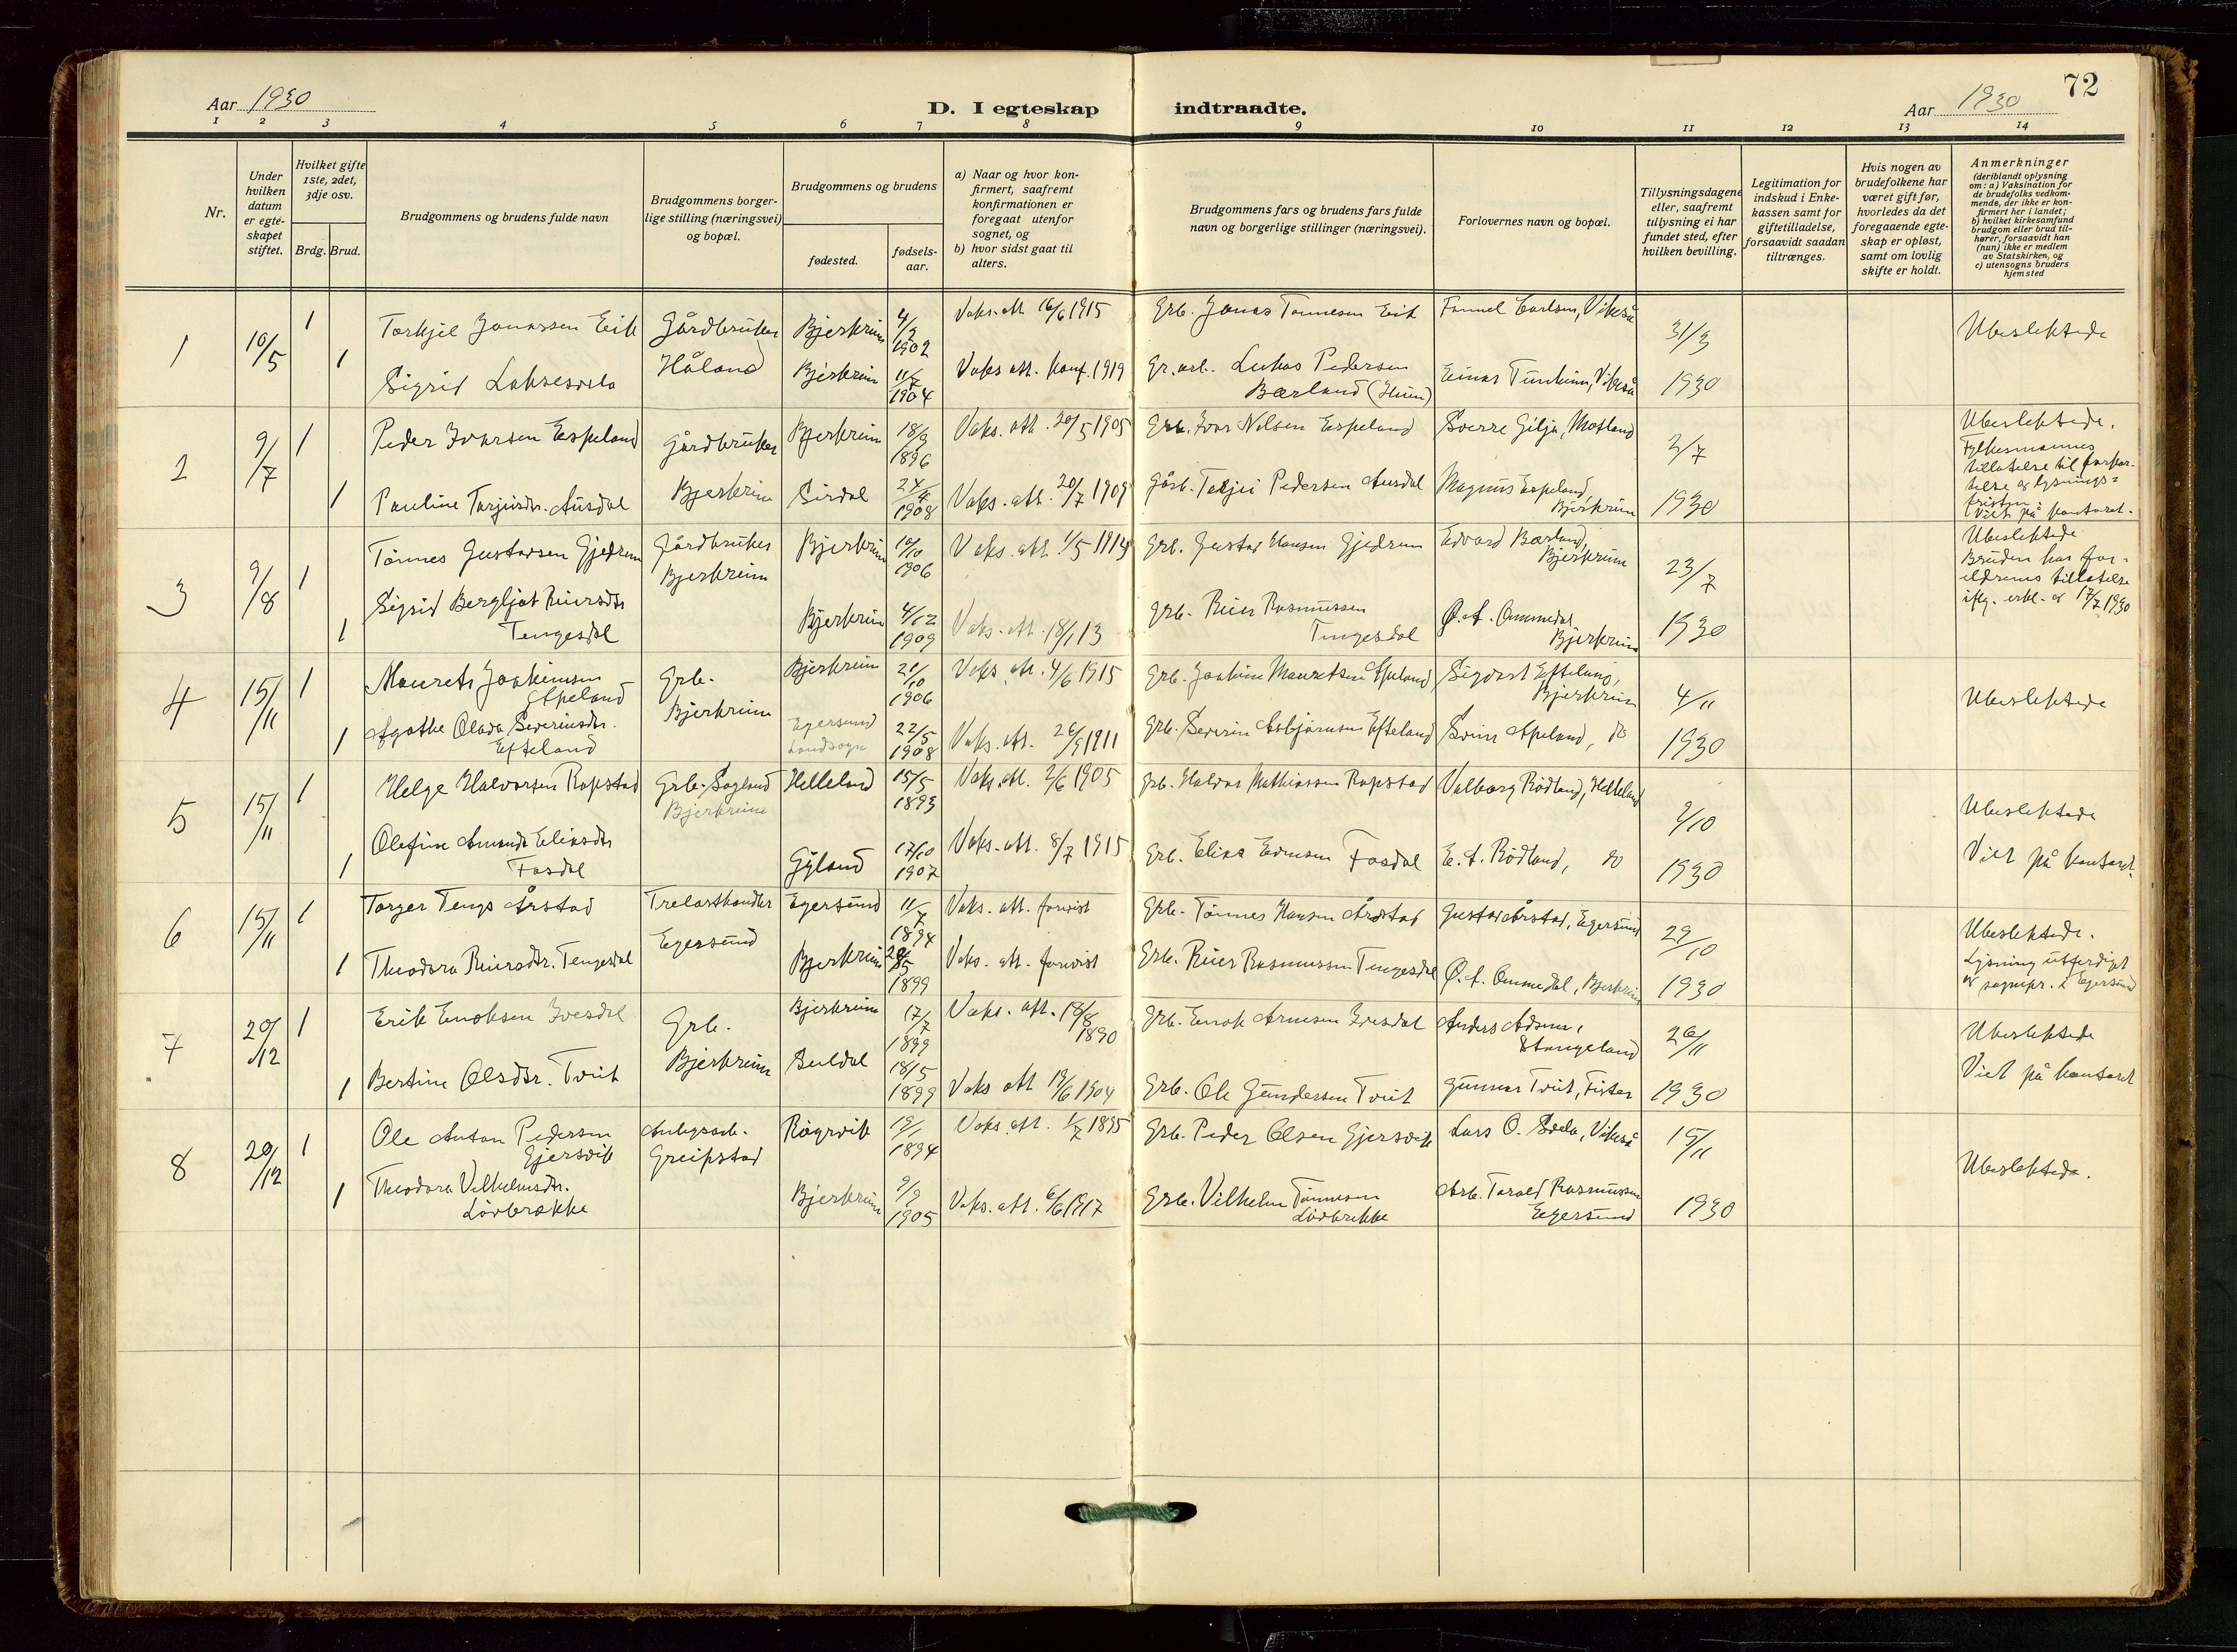 Aar 1930
D. I egteskap indtraadte.
Aar 1930
72
1 2 3 4 5 6 7 8 9 10 11 12 13 14
Nr.
Under hvilken datum er egte-skapet stiftet.
Hvilket gifte 1ste, 2det, 3dje osv.
Brdg. Brud.
Brudgommens og brudens fulde navn
Brudgommens borger-lige stilling (næringsvei) og bopæl.
Brudgommens og brudens
fødested.
fødsels-aar.
a) Naar og hvor kon-firmert, saafremt konfirmationen er foregaat utenfor sognet, og
b) hvor sidst gaat til alters.
Brudgommens fars og brudens fars fulde navn og borgerlige stillinger (næringsvei).
Forlovernes navn og bopæl.
Tillysningsdagene eller, saafremt tillysning ei har fundet sted, efter hvilken bevilling.
Legitimation for indskud i Enke-kassen samt for giftetilladelse, forsaavidt saadan tiltrænges.
Hvis nogen av brudefolkene har været gift før, hvorledes da det foregaaende egte-skap er opløst, samt om lovlig skifte er holdt.
Anmerkninger (deriblandt oplysning om: a) Vaksination for de brudefolks vedkom-mende, der ikke er kon-firmert her i landet; b) hvilket kirkesamfund brudgom eller brud til-hører, forsaavidt han (hun) ikke er medlem av Statskirken, og c) utensogns bruders hjemsted
1 10/5 1 Torkjel Jonassen Eik Gårdbruker Bjerkreim 4/3 1902 Vaks. att 16/6 1915 Grb. Jonas Tønnesen Eik Carlsen, Vikeså 31/3 Ubeslektede
1 Sigrid Laksesvela Håland Bjerkreim 11/7 1904 Vaks att. konf. 1919 Gr. arb. Lukas Pedersen Bærland Einar Vikeså 1930
2 9/7 1 Peder Ivarsen Espeland Gårdbruker Bjerkreim 18/9 1896 Vaks. att. 20/5 1905 Grb. Ivar Nilsen Espeland Sverre Gilja, Motland 2/7 Ubeslektede.
Fylkesmannes tillatelse til forkor-telse av lysnings-fristen.
Viet på kontoret.
1 Pauline Tarjeisdtr. Ausdal Bjerkreim Sirdal 24/4 1908 Vaks. att. 20/7 1909 Gårb. Tarjei Pedersen Ausdal Magnus Espeland, Bjerkreim 1930
3 9/8 1 Tønnes Gustavsen Gjedrem Gårdbruker Bjerkreim Bjerkreim 10/10 1906 Vaks. att. 1/5 1914 Grb. Gustav Hansen Gjedrem Edvard Bærland, Bjerkreim 23/7 Ubeslektede
Bruden har for-eldrenes tillatelse iflg. erkl. av 17/7 1930
1 Sigrid Bergljot Reiersdtr Tengesdal Bjerkreim 4/12 1909 Vaks. att. 18/1 13 Grb. Reier Rasmussen Tengesdal O. A. Ommedal Bjerkreim 1930
4 15/11 1 Maurets Joakimsen Apeland Grb. Bjerkreim Bjerkreim 21/10 1906 Vaks. att. 4/6 1915 Grb. Joakim Mauretsen Apeland Sigvart Efteland, Bjerkreim 4/11 Ubeslektede
1 Agathe Olava Severinsdtr. Efteland Egersund Landsogn 22/5 1908 Vaks. att. 26/9 1911 Grb. Severin Asbjørnsen Efteland Svein Apeland, do 1930
5 15/11 1 Helge Halvorsen Rapstad Grb. Bjerkreim Helleland 15/5 1893 Vaks. att. 2/6 1905 Grb. Halvor Mathiassen Rapstad Valborg Rødland, Helleland 9/10 Ubeslektede
Viet på kontoret.
1 Olefine Amanda Eliasdtr Fasdal Gyland 17/10 1907 Vaks. att. 8/7 1915 Grb. Elias Fasdal E. A. Rødland, do 1930
6 15/11 1 Torger Tengs Årstad Trelasthandler Egersund Egersund 11/7 1894 Vaks. att. forevist Grb. Tønnes Hansen Årstad Gustav Årstad, Egersund 29/10 Ubeslektede.
Lysning utferdiget av sognepr. i Egersund
1 Theodora Reiersdtr. Tengesdal Bjerkreim 24/5 1899 Vaks. att. forevist Grb. Reier Rasmussen Tengesdal O. A. Ommedal, Bjerkreim 1930
7 20/12 1 Erik Enoksen Ivesdal Grb. Bjerkreim Bjerkreim 17/7 1899 Vaks. att. 18/8 1890 Grb. Enok Arnesen Ivesdal Anders Adsen, Stangeland 26/11 Ubeslektede
Viet på kontoret
1 Bertine Olsdtr. Tveit Suldal 18/5 1899 Vaks att 19/6 1904 Grb. Ole Gundersen Tveit Gunnar Tveit, Fister 1930
8 20/12 1 Ole Anton Pedersen Gjersvik Anlegsarb. Greipstad Røyrvik 19/1 1894 Vaks. att. 1/7 1895 Grb. Peder Olsen Gjersvik Lars O. Svela, Vikeså 15/11 Ubeslektede.
1 Theodora Vilhelmsdtr. Lovbrække Bjerkreim 9/9 1905 Vaks. att. 6/6 1917 Grb. Vilhelm Tønnesen Lovbrekke Arb. Torald Rasmussen Egersund 1930